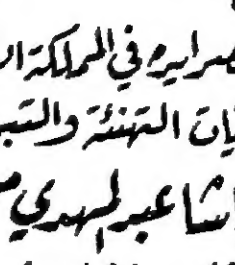 صراير في المملكة ا
يات التهنئة والتبر
اشا عبدالمهدي